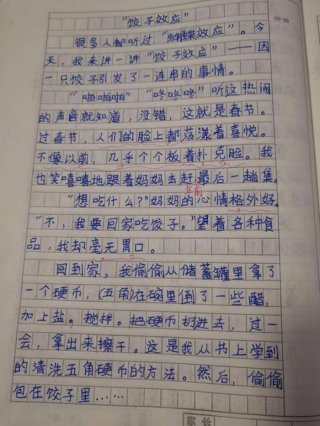 “饺子效应”
很多人都听过“蝴蝶效应”。今
天,我来讲一讲“饺子效应”——因
一只饺子引发了一连串的事情。
“啪啪啪”“咚咚咚”听这热闹
的声音就知道,没错,这就是春节。
过春节,人们的脸上都荡漾着喜悦。
不像以前,几乎个个板着扑克脸。我
也笑嘻嘻地跟着妈妈去赶最后一趟集
“想吃什么?”妈妈的心情格外好
“不,我要回家吃饺子。”望着各种食
品,我却毫无胃口。
回到家,我偷偷从储蓄罐里拿了
一个硬币,(五角)在碗里倒了一些醋,
加上盐。搅拌。把硬币扔进去,过一
会,拿出来擦干。这是我从书上学到
的清洗五角硬币的方法。然后,偷偷
包在饺子里……
家长